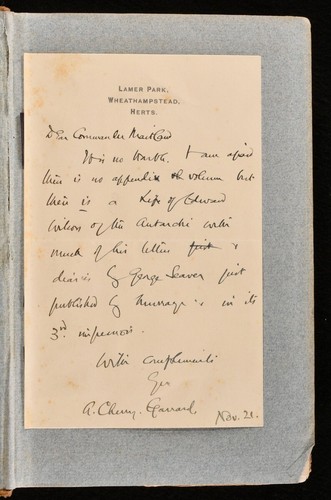 LAMER PARK,
WHEATHAMPSTEAD,
HERTS.
Dear Commander Maitland
It is no trouble. I am afraid
there is no appendix volume but
there is a Life of Edward
Wilson of the Antarctic with
much of his letters &
diaries by George Seaver just
published by Murray & is in its
3rd. impression.
With compliments
Yrs
A. Cherry-Garrard
Nov. 21.